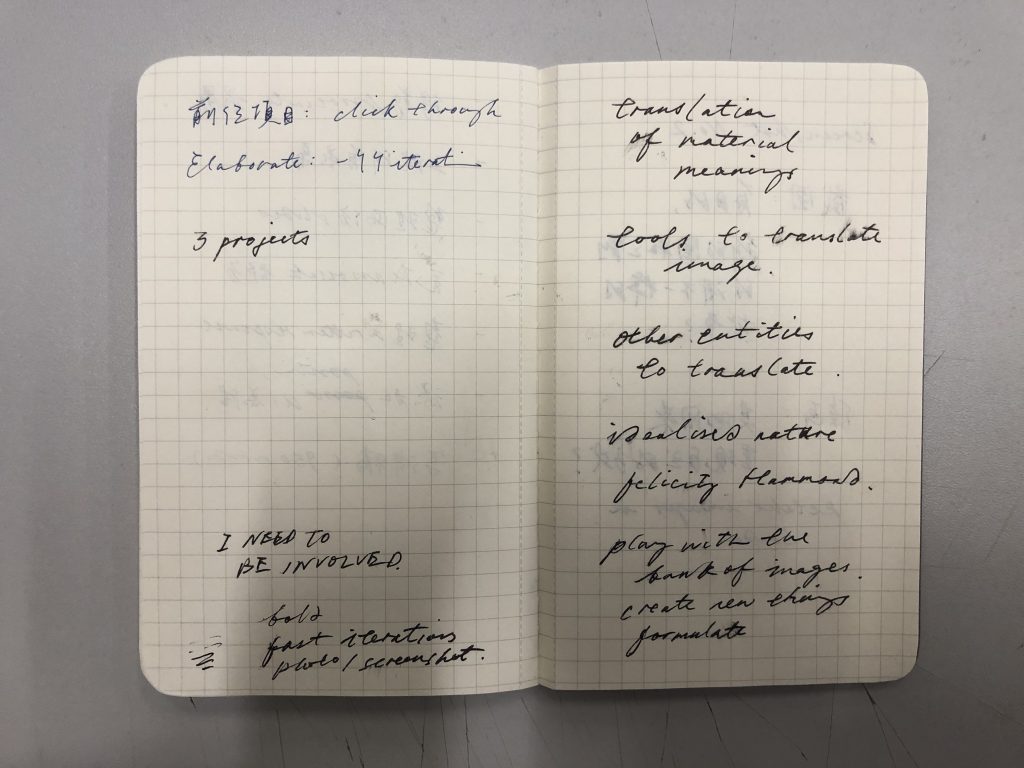 前任項目: click through
Elaborate: - 44 iterati
3 projects
I NEED TO
BE INVOLVED.
bold
fast iterations
photo/screenshot.
translation
of material
meanings
tools to translate
image.
other entities
to translate.
idealised nature
felicity Hammond.
play with the
bank of images.
create new things
formulate